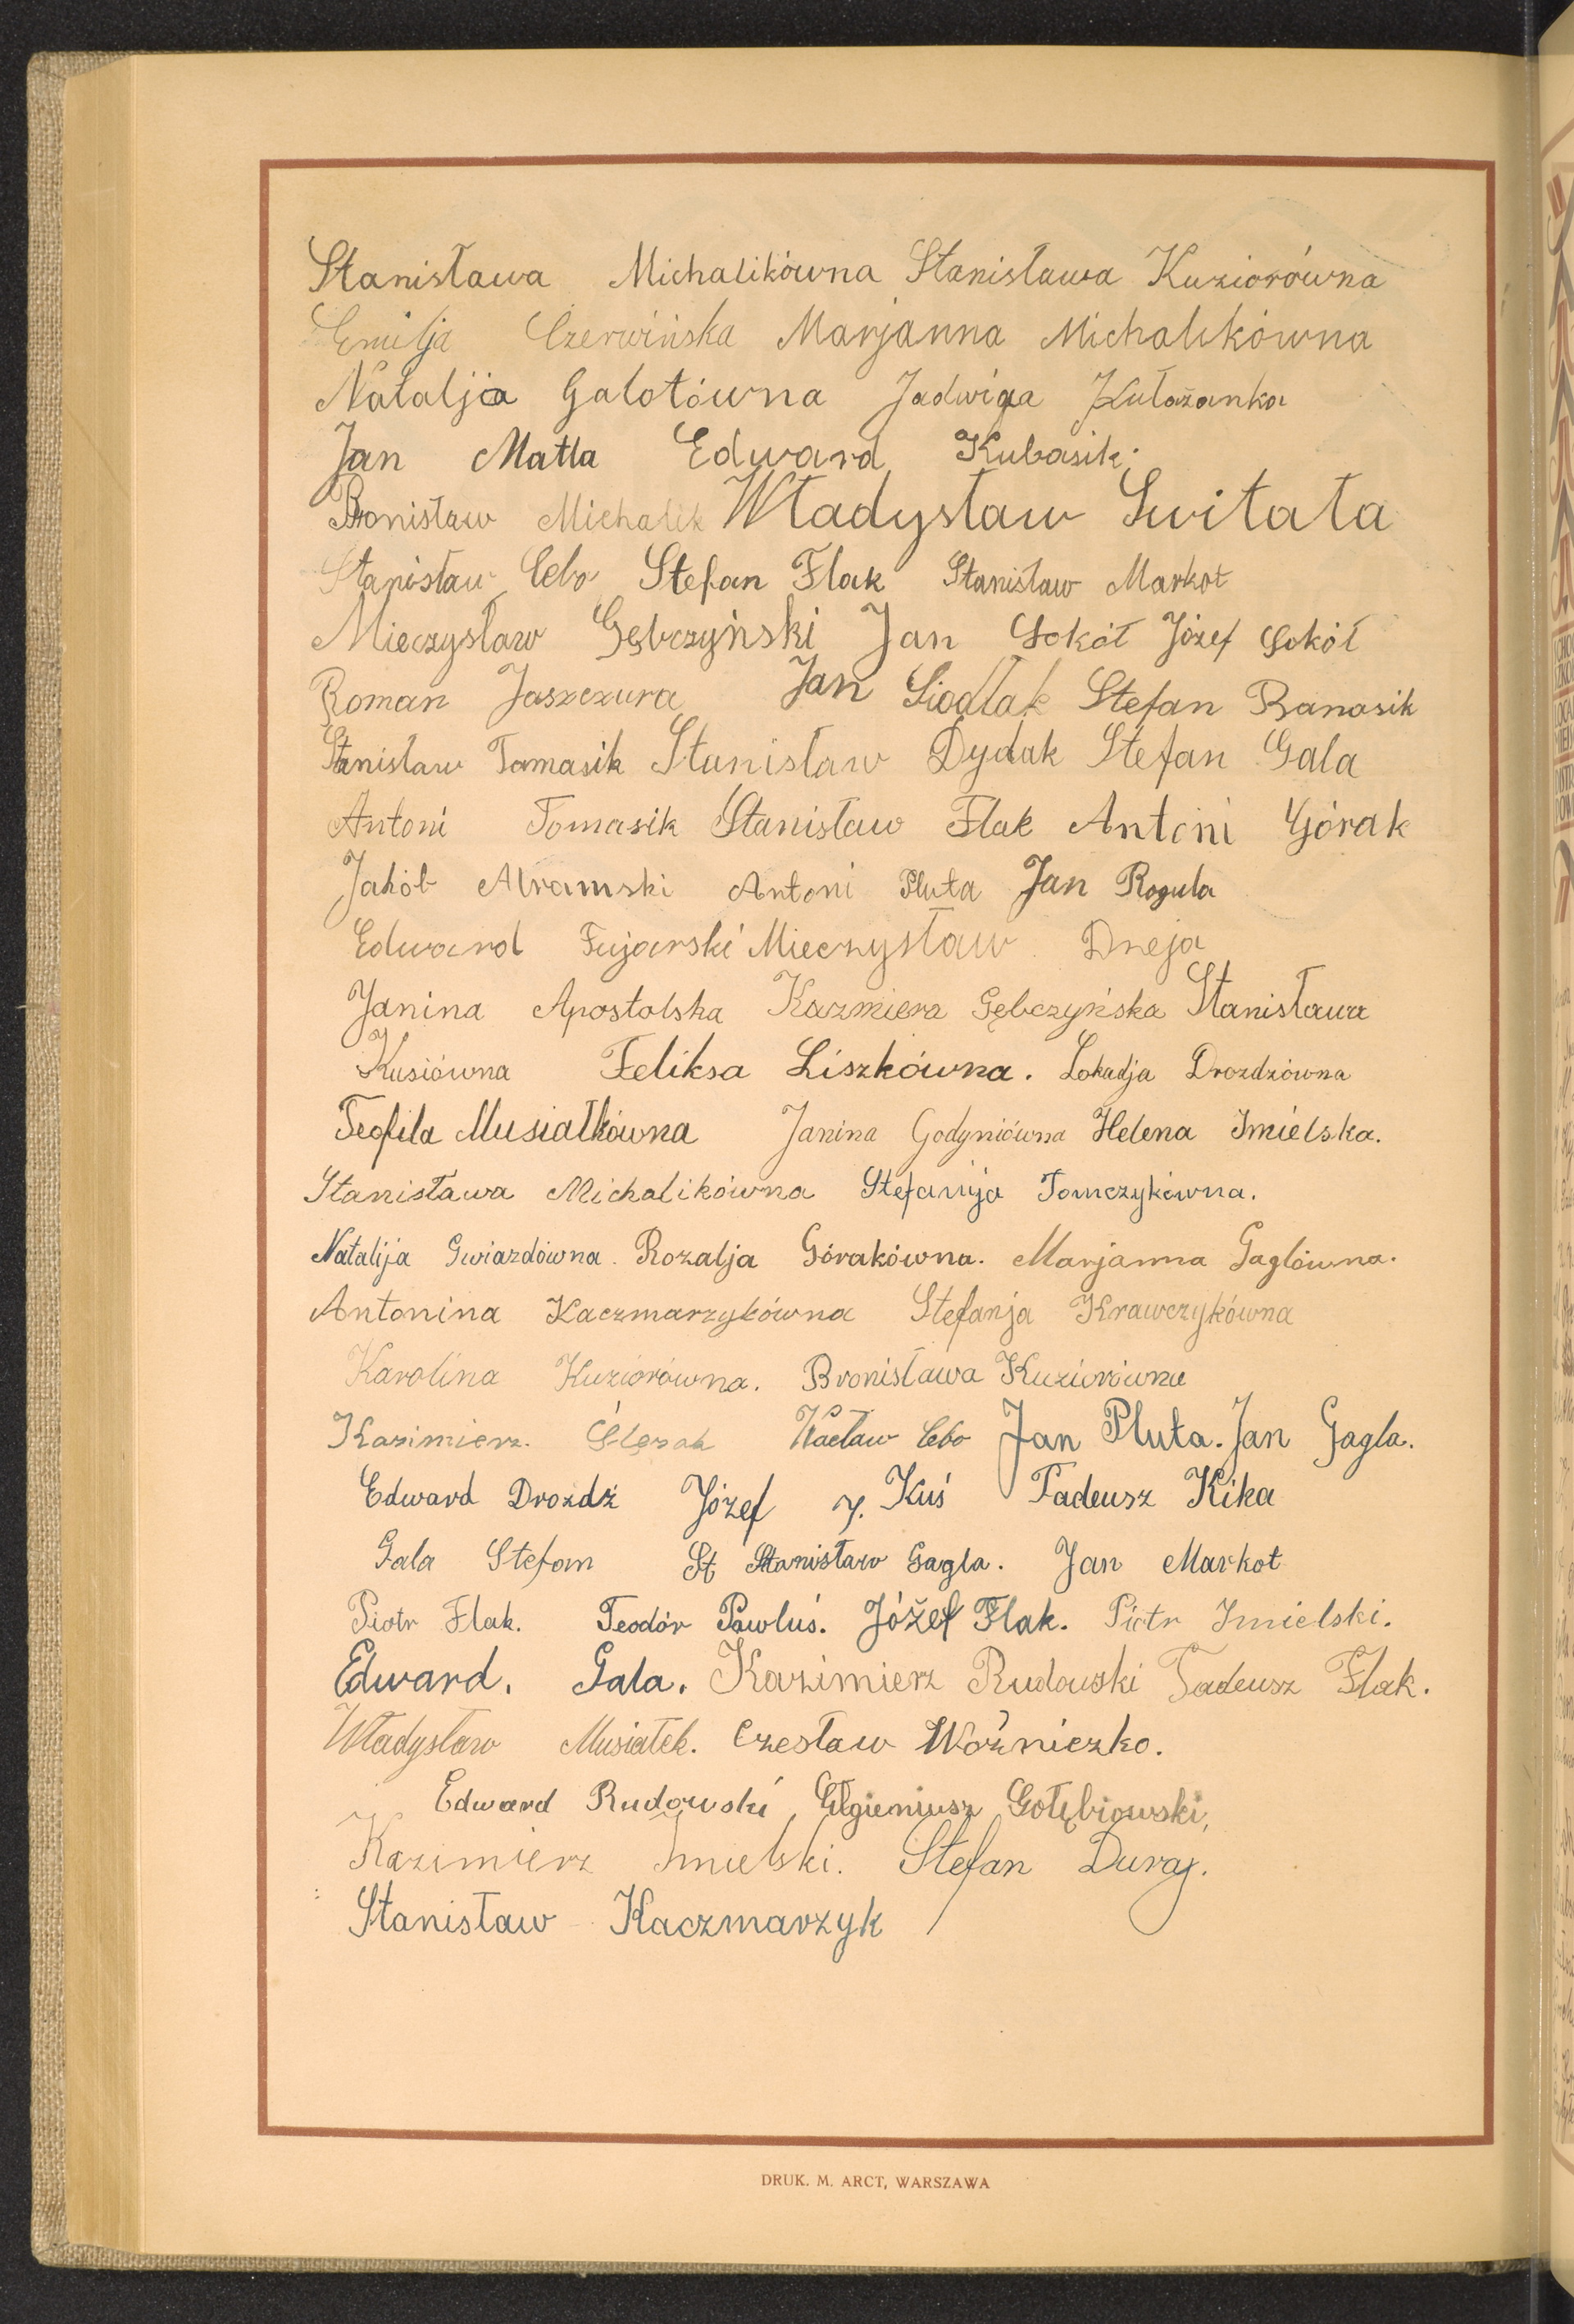 Stanisława Michalikówna Stanisława Kuziorówna
Emilja Czerwińska Marjanna Michalikówna
Natalija Galotówna Jadwiga Kułażanka
Jan Matla Edward Kubasik.
Bronisław Michalik Władysław Switała
Stanisław Cebo Stefan Flak Stanisław Markot
Mieczysław Gębczyński Jan Sokół Józef Sokół
Roman Jaszczura Jan Siodłak Stefan Banasik
Stanisław Tomasik Stanisław Dydak Stefan Gala
Antoni Tomasik Stanisław Flak Antoni Górak
Jakób Abramski Antoni Pluta Jan Rogula
Edward Fujarski Mieczysław Dzieja
Janina Apostolska Kazmiera Gębczyńska Stanisława
Kusiówna Feliksa Liszkówna. Lokadja Drozdzówna
Teofila Musiałkówna Janina Godyniówna Helena Imielska.
Stanisława Michalikówna Stefanija Tomczykówna.
Natalija Gwiazdówna. Rozalja Górakówna. Marjanna Gaglówna.
Antonina Kaczmarzykówna Stefanja Krawczykówna
Karolina Kuziorówna. Bronisława Kuziorówna
Kazimierz. Ślęzak Wacław Cebo Jan Pluta. Jan Gagla.
Edward Drozdź Józef J. Kuś Tadeusz Kika
Gala Stefan St Stanisław Gagla. Jan Markot
Piotr Flak. Teodór Pawluś. Józef Flak. Piotr Imielski.
Edward. Gala. Kazimierz Rudowski Tadeusz Flak.
Władysław Musiałek. Czesław Woźniczko.
Edward Rudowski, Eugieniusz Gołębiowski,
Kazimierz Imielski. Stefan Duraj.
Stanisław Kaczmarzyk
DRUK. M. ARCT, WARSZAWA